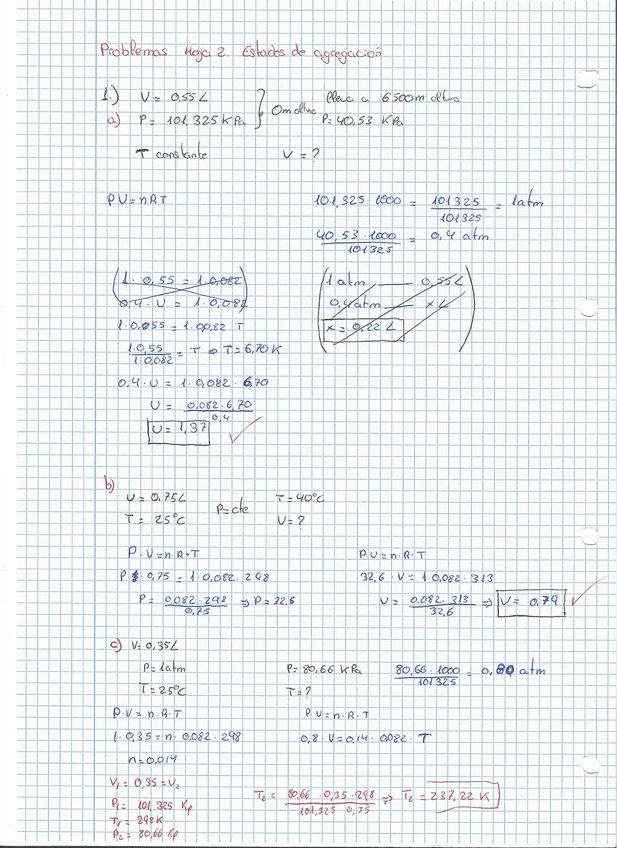 Problemas Hoja 2. Estados de agregación
1.) V = 0,55L
a) P = 101,325 KPa } 0m altura
lleva a 6500m altura
P = 40,53 KPa
T constante V = ?
PV = nRT
101,325 · 1000 = 101325 / 101325 = 1atm
40,53 · 1000 / 101325 = 0,4 atm
1 · 0,55 = 1 · 0,082
0,4 · V = 1 · 0,082
1 · 0,055 = 1 · 00,82 T
1 · 0,55 / 1 · 0,082 = T T = 6,70 K
0,4 · V = 1 · 0,082 · 6,70
V = 0,082 · 6,70 / 0,4
V = 1,37
1 atm 0,55L
0,4 atm x L
x = 0,22 L
b)
V = 0,75L P = cte T = 40°C
T = 25°C V = ?
P · V = n · R · T
P · 0,75 = 1 · 0,082 · 298
P = 0,082 · 298 / 0,75 ⇒ P = 32,6
PV = n · R · T
32,6 · V = 1 · 0,082 · 313
V = 0,082 · 313 / 32,6 ⇒ V = 0,79
c) V = 0,35L
P = 1atm P = 80,66 KPa 80,66 · 1000 / 101325 = 0,80 atm
T = 25°C T = ?
P · V = n · R · T P · V = n · R · T
1 · 0,35 = n · 0,082 · 298 0,8 · V = 0,14 · 0,082 · T
n = 0,014
V₁ = 0,35 = V₂
P₁ = 101,325 Kp
T₁ = 298K
P₂ = 80,66 Kp
T₂ = 80,66 · 0,35 · 298 / 101,325 0,35 ⇒ T₂ = 237,22 K